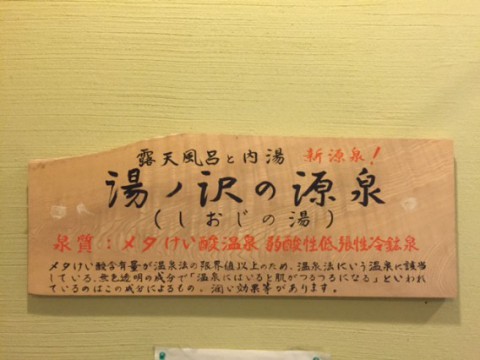 露天風呂と内湯 新源泉!
湯ノ沢の源泉
(しおじの湯)
泉質:メタけい酸温泉 弱酸性低張性冷鉱泉
メタけい酸含有量が温泉法の限界値以上のため、温泉法にいう温泉に該当
している。無色透明の成分で「温泉にはいると肌がつるつるになる」といわれ
ているのはこの成分によるもの。潤い効果等があります。